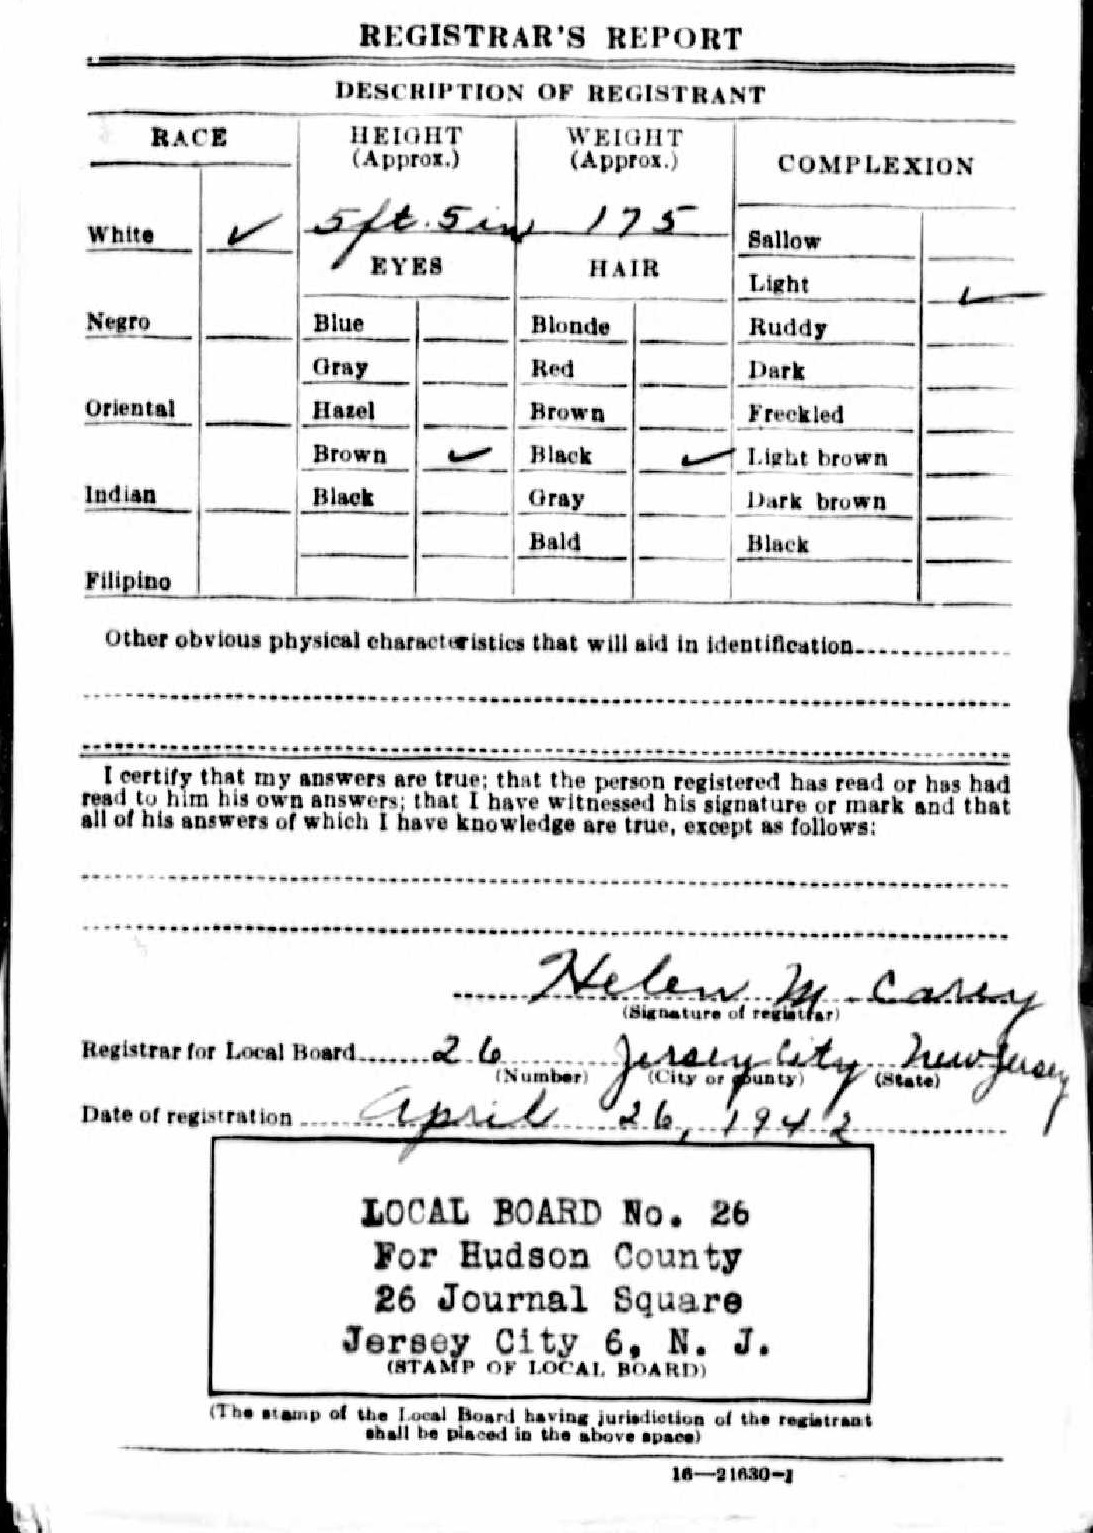 REGISTRAR'S REPORT
DESCRIPTION OF REGISTRANT
RACE
HEIGHT
(Approx.)
WEIGHT
(Approx.)
COMPLEXION
White ✓
5 ft. 5 in
175
Sallow
EYES
HAIR
Light ✓
Negro
Blue
Blonde
Ruddy
Gray
Red
Dark
Oriental
Hazel
Brown
Freckled
Brown ✓
Black ✓
Light brown
Indian
Black
Gray
Dark brown
Bald
Black
Filipino
Other obvious physical characteristics that will aid in identification
I certify that my answers are true; that the person registered has read or has had
read to him his own answers; that I have witnessed his signature or mark and that
all of his answers of which I have knowledge are true, except as follows:
Helen M. Carey
(Signature of registrar)
Registrar for Local Board 26 Jersey City New Jersey
(Number) (City or county) (State)
Date of registration April 26, 1942
LOCAL BOARD No. 26
For Hudson County
26 Journal Square
Jersey City 6, N. J.
(STAMP OF LOCAL BOARD)
(The stamp of the Local Board having jurisdiction of the registrant
shall be placed in the above space)
16—21630-1